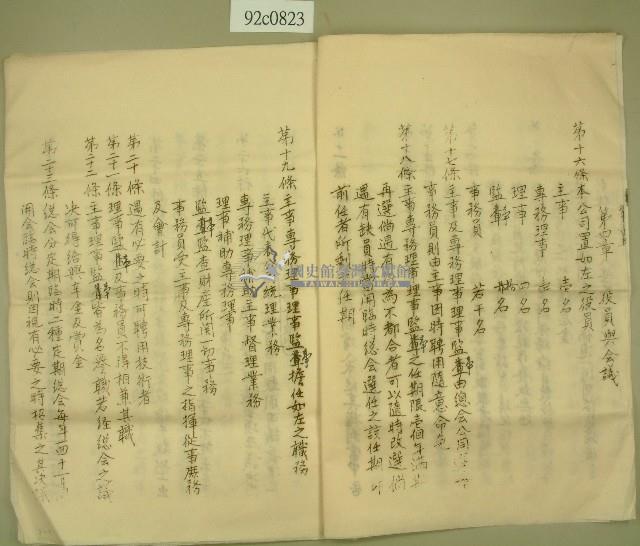 92c0823
第四章 役員與会議
第十六條本公司置如左之役員
主事 壹名
專務理事 壹名
理事 四名
監事
事務員 若干名
第十七條主事及專務理事理事監事由總会公同
事務員則由主事因時聘用隨意命免
第十八條主事專務理事理事監事之任期限壹個年滿
再選倘遇有 為不都合者可以隨時改選倘
遇有缺員時 開臨時總会選任之該任期
前任者所剩 任期
第十九條主事專務理事理事監事擔任如左之職務
主事代表 統理業務
專務理事 主事督理業務
理事補助專務理事
監事監查財産所関一切事務
事務員受主事及專務理事之指揮從事庶務
及會計
第二十條遇有必要之時可聘用技術者
第二十一條理事監事及事務員不得相兼其職
第二十二條主事理事監事皆為名譽職若經總会之議
決可得給與車金及賞金
第二十三條總会分定期臨時二種定期總会每年四十一月
開会臨時總会則因視有必要之時招集之其決議
國史館臺灣文獻館
TAIWAN HISTORICA